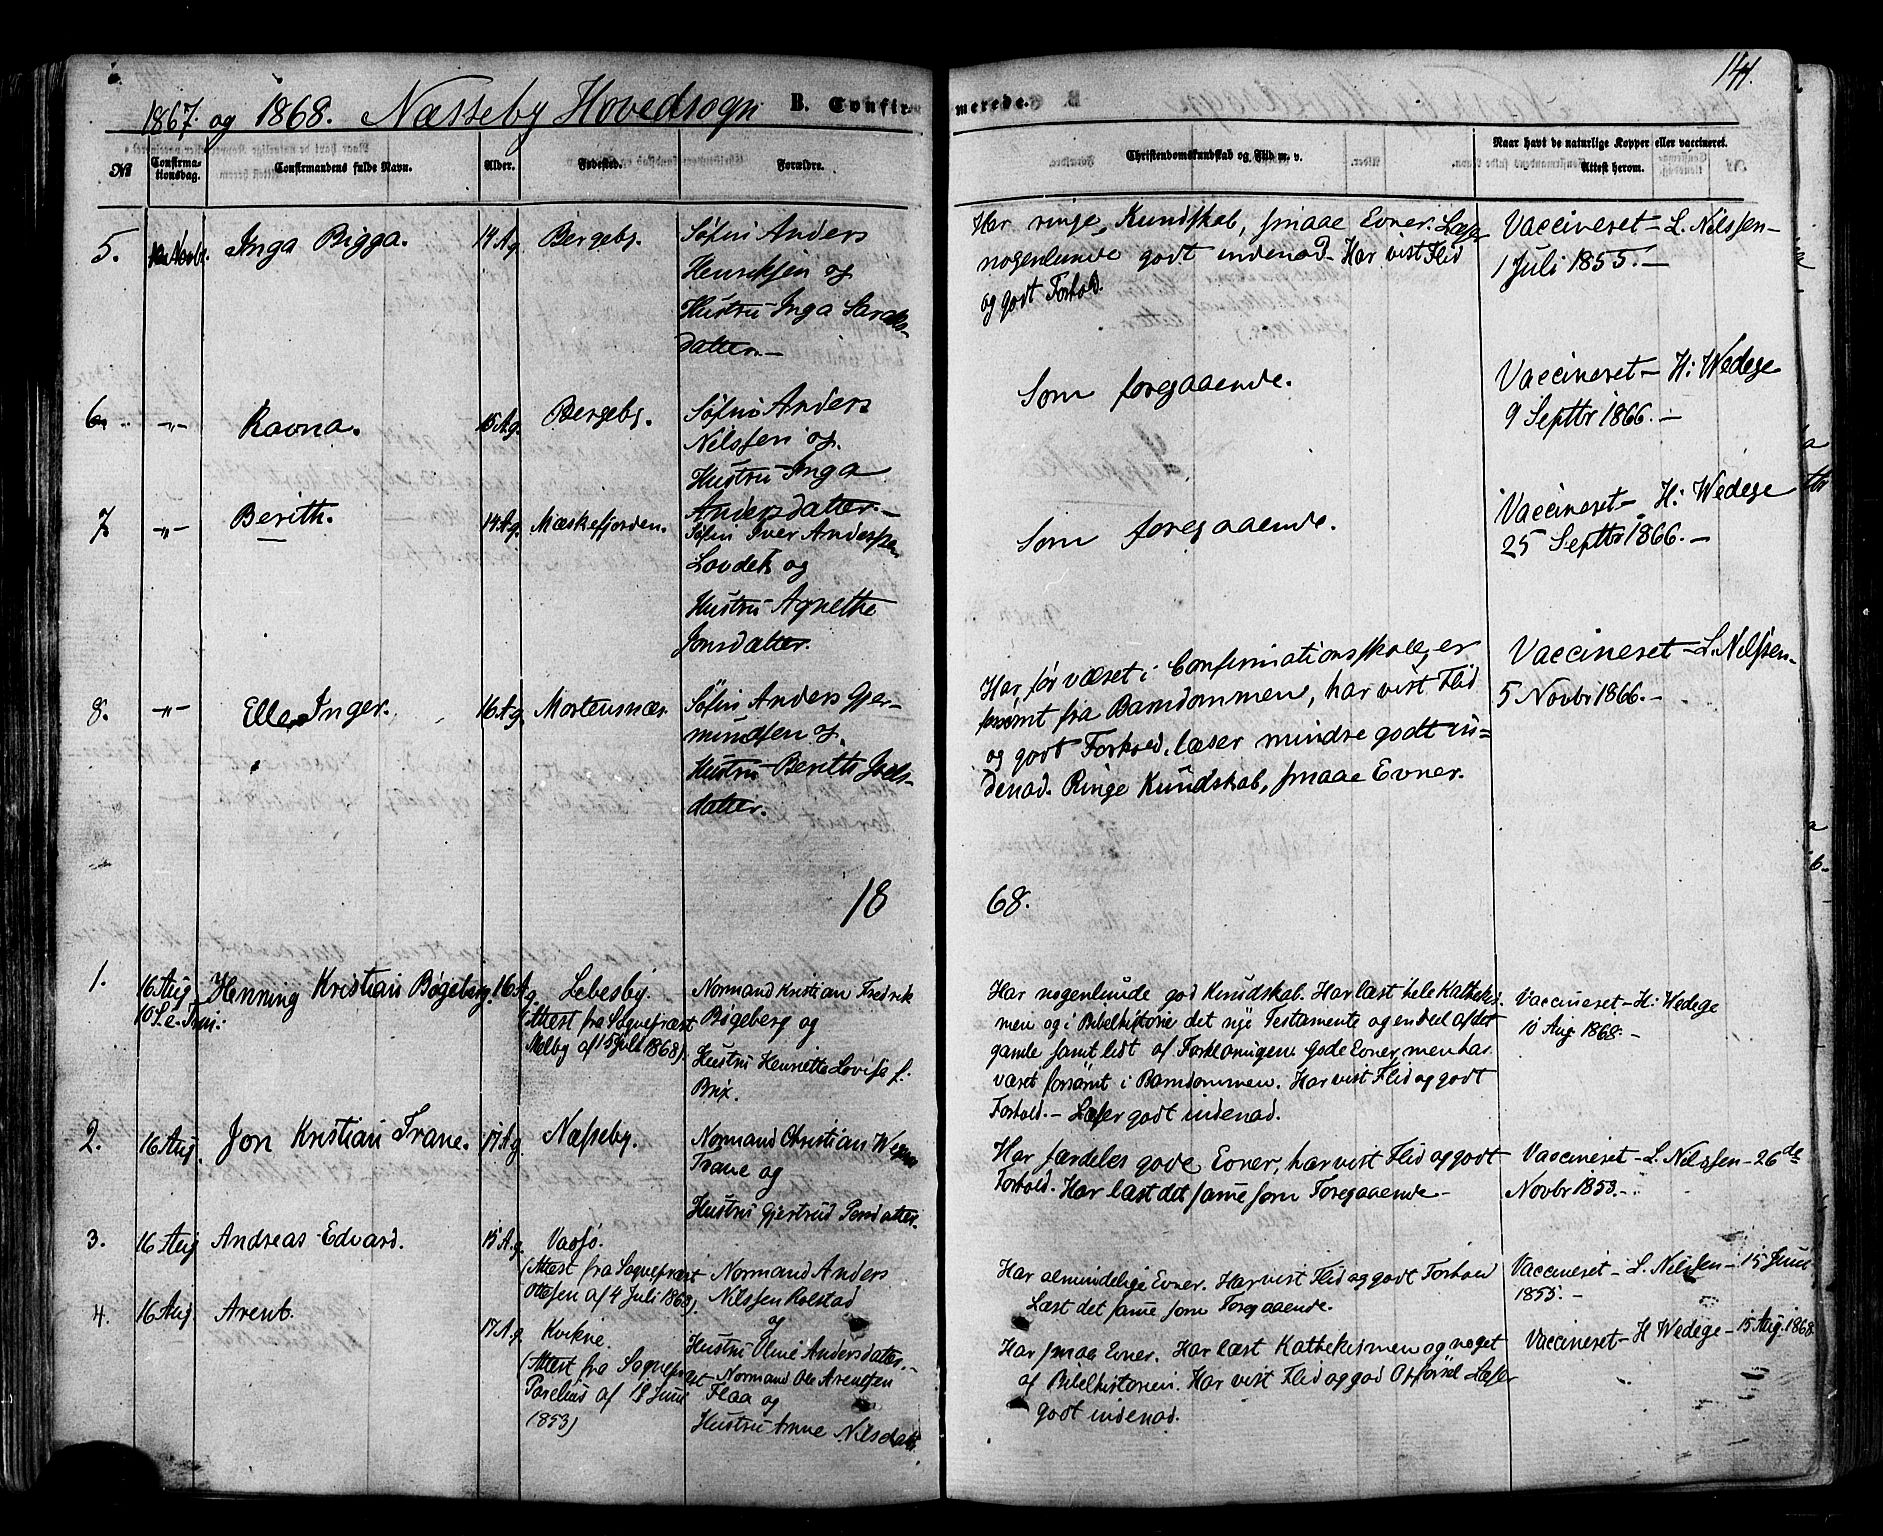 141.
1867. og 1868. Næsseby Hovedsogn B. Confirmerede.
№ Confirmationsdag. Confirmandens fulde Navn. Alder. Fødested. Forældre. Christendomskundskab og Flid m. v. Naar havt de naturlige Kopper eller vaccineret. Attest herom.
5. Novbr. Inga Bigga. 14 A g. Bergeby.
Søfin Anders
Henriksen og
Hustru Inga
datter.—
Har ringe Kundskab, smaae Evner. Læser
nogenlunde godt indenad. Har vist Flid
og godt Forhold.
Vaccineret – L. Nilssen –
1 Juli 1855. –
6. –"– Ravna. 15 A g. Bergeby.
Søfin Anders
Nilssen og
Hustru Inga
Andersdatter.—
Som foregaaende.
Vaccineret – H: Wedege
9 Septbr 1866. –
7. –"– Berith. 14 A g. Mæskefjorden.
Søfin Iver Anderssen
Lovdek og
Hustru Agnethe
Jonsdatter.
Som foregaaende.
Vaccineret – H: Wedege
25 Septbr 1866. –
8. –"– Elle Inger. 16 A g. Mortensnæs.
Søfin Anders Gjer-
mundsen og
Hustru Berith Joels-
datter.
Har før været i Confirmationsskole, er
forsømt fra Barndommen, har vist Flid
og godt Forhold, læser mindre godt in=
denad. Ringe Kundskab, smaae Evner.
Vaccineret – L. Nilssen –
5 Novbr 1866. –
18 68.
1. 16 Aug Henning Kristian Bøgeberg. 16 A g. Lebesby.
10 S. e. Trin:
(Attest fra Sognepræst
Melby af 15 Juli 1868).
Normand Kristian Fredrik
Bøgeberg og
Hustru Henriette Lovisa f:
Brix.
Har nogenlunde god Kundskab. Har læst hele Kathekis
men og i Bibelhistorie det nye Testamente og en Deel af det
gamle samt lidt af Forklaringen gode Evner, men har
været forsømt i Barndommen. Har vist Flid og godt
Forhold. – Læser godt indenad.
Vaccineret – H: Wedege
10 Aug 1868. –
2. 16 Aug. Jon Kristian Trane. 17 A g. Næsseby.
Normand Christian
Trane og
Hustru Gjertrud
Har færdeles gode Evner, har vist Flid og godt
Forhold. Har læst det samme som Foregaaende –
Vaccineret – L. Nilssen – 26de
Novbr 1853. –
3. 16 Aug Andreas Edvard. 15 A g. Vadsø.
(Attest fra Sognepræst
Ottesen af 4 Juli 1868).
Normand Anders
Nilssen Kolstad
og
Hustru Oline Andersdatter. –
Har almindelige Evner. Har vist Flid og godt Forhold
Læst det samme som Foregaaende.
Vaccineret – L. Nilssen – 15 Juni
1855. –
4. 16 Aug. Arent. 17 A g. Kvikne.
(Attest fra Sognepræst
af 18 Juni
1853)
Normand Ole Arentsen
Flaa og
Hustru Anne Nilsdatter
Har smaa Evner. Har læst Kathekismen og noget
af Bibelhistorien. Har vist Flid og god Opførsel Læser
godt indenad.
Vaccineret – H Wedege – 15 Aug. 1868.